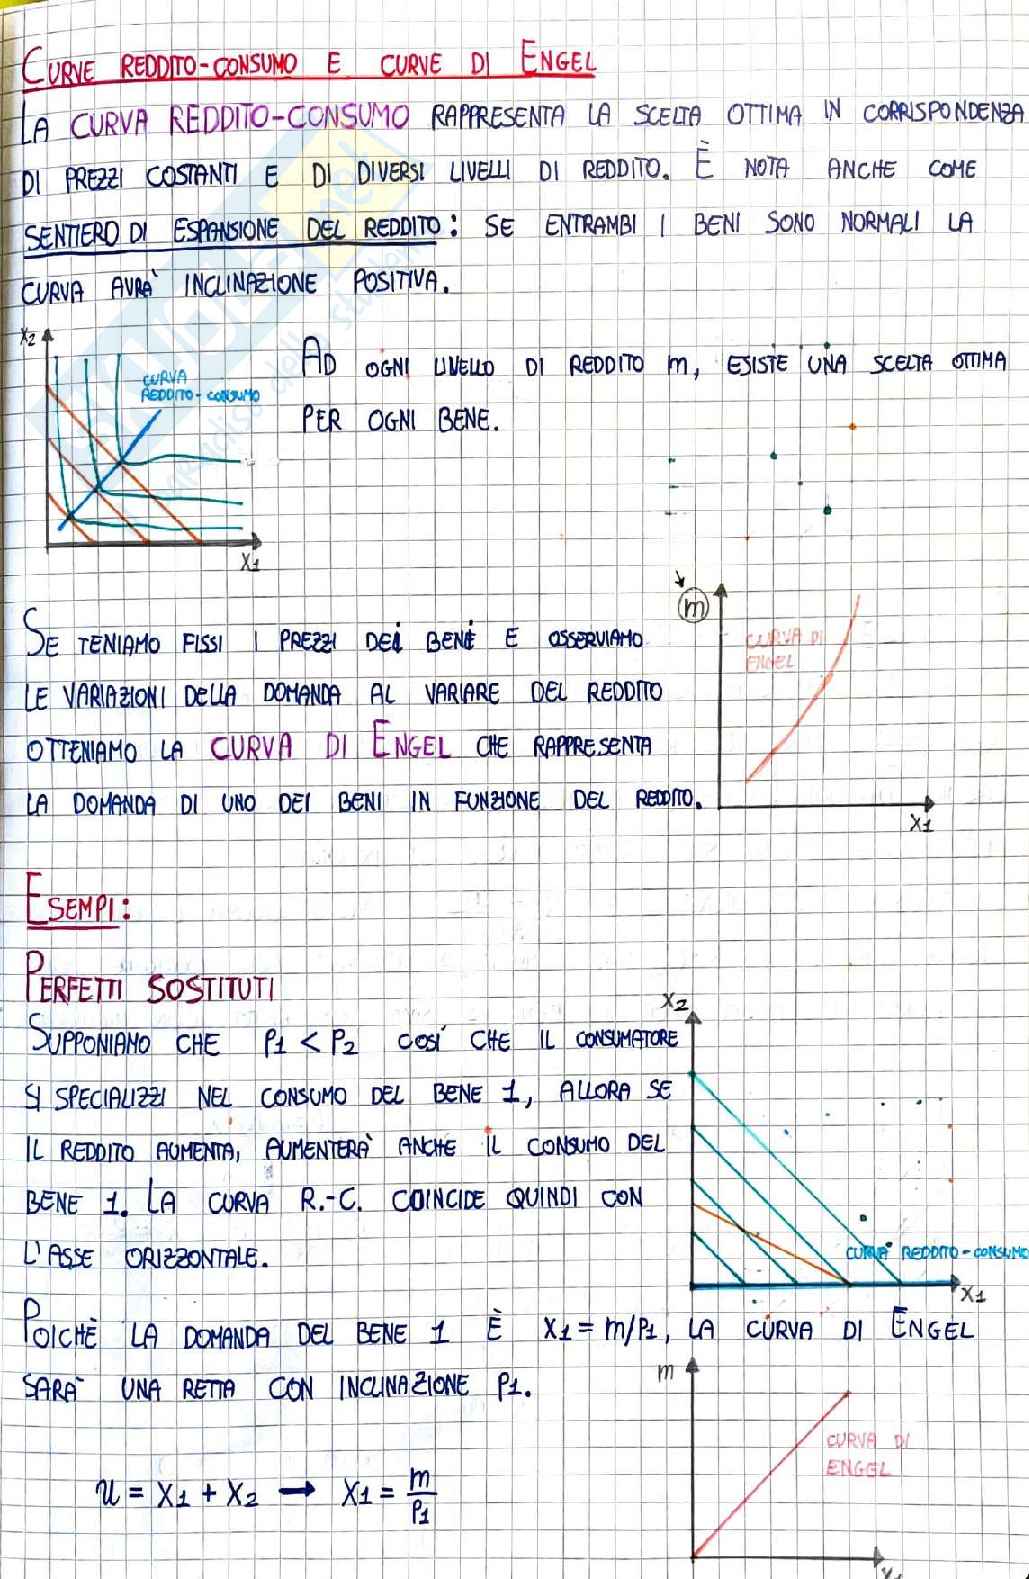 CURVE REDDITO-CONSUMO E CURVE DI ENGEL
LA CURVA REDDITO-CONSUMO RAPPRESENTA LA SCELTA OTTIMA IN CORRISPONDENZA
DI PREZZI COSTANTI E DI DIVERSI LIVELLI DI REDDITO. È NOTA ANCHE COME
SENTIERO DI ESPANSIONE DEL REDDITO: SE ENTRAMBI I BENI SONO NORMALI LA
CURVA AVRÀ INCLINAZIONE POSITIVA.
X2
CURVA
REDDITO-CONSUMO
X1
AD OGNI LIVELLO DI REDDITO m, ESISTE UNA SCELTA OTTIMA
PER OGNI BENE.
SE TENIAMO FISSI I PREZZI DEI BENI E OSSERVIAMO
LE VARIAZIONI DELLA DOMANDA AL VARIARE DEL REDDITO
OTTENIAMO LA CURVA DI ENGEL CHE RAPPRESENTA
LA DOMANDA DI UNO DEI BENI IN FUNZIONE DEL REDDITO.
m
CURVA DI
ENGEL
X1
ESEMPI:
PERFETTI SOSTITUTI
SUPPONIAMO CHE P1 < P2 COSÌ CHE IL CONSUMATORE
SI SPECIALIZZI NEL CONSUMO DEL BENE 1, ALLORA SE
IL REDDITO AUMENTA, AUMENTERÀ ANCHE IL CONSUMO DEL
BENE 1. LA CURVA R.-C. COINCIDE QUINDI CON
L'ASSE ORIZZONTALE.
X2
CURVA REDDITO-CONSUMO
X1
POICHÈ LA DOMANDA DEL BENE 1 È X1 = m/P1, LA CURVA DI ENGEL
SARÀ UNA RETTA CON INCLINAZIONE P1.
m
CURVA DI
ENGEL
X1
U = X1 + X2 → X1 = m/P1